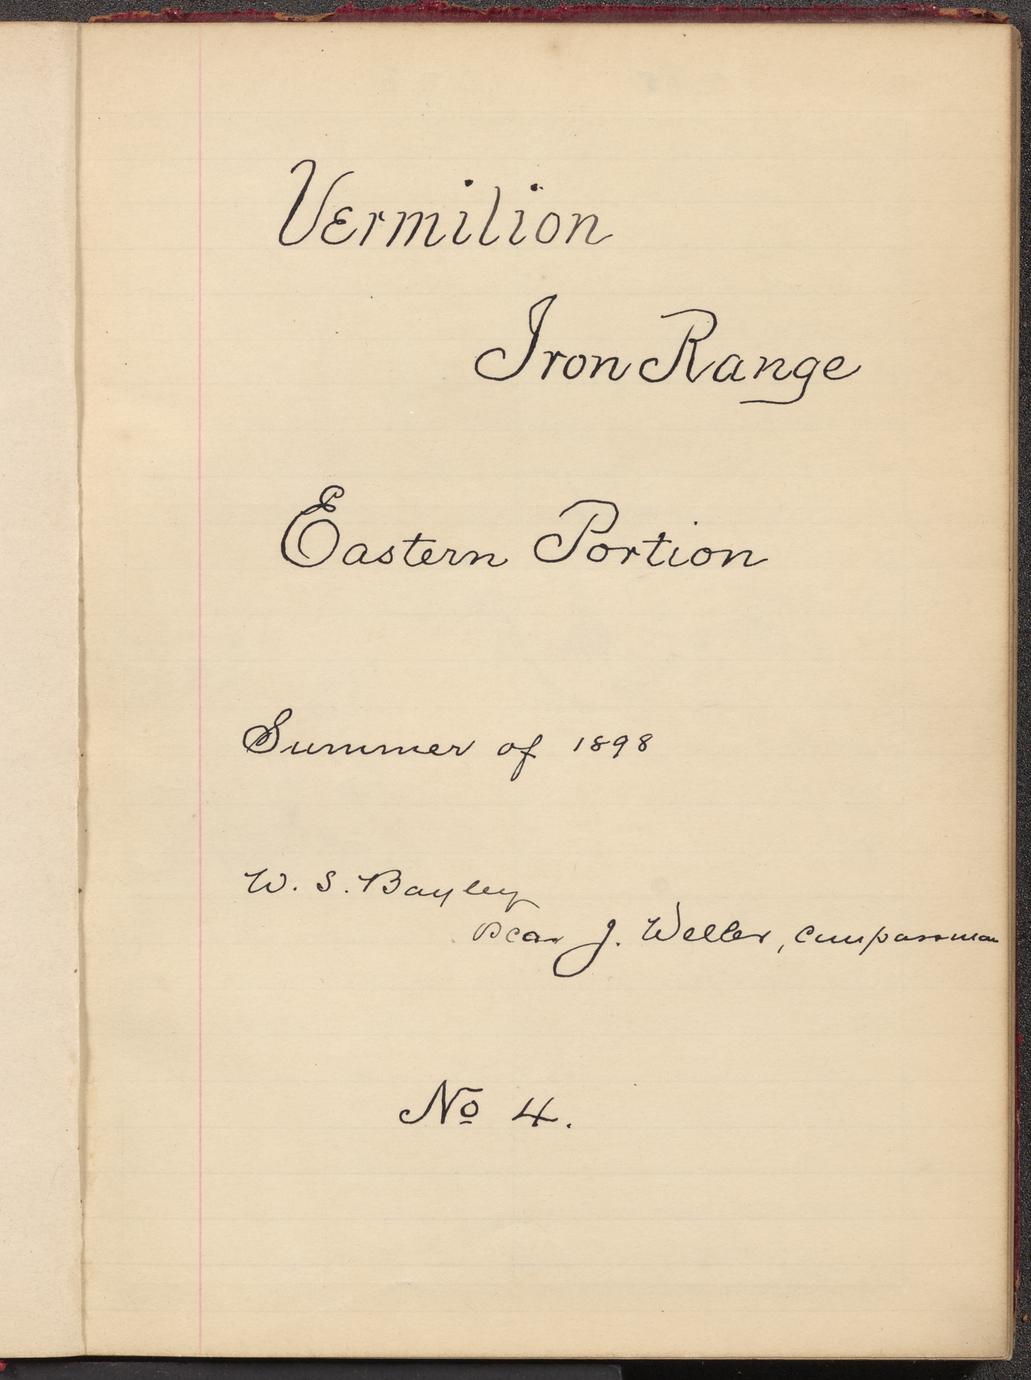 Vermilion
Iron Range
Eastern Portion
Summer of 1898
W. S. Bayley
J. Weller, compassman
No 4.